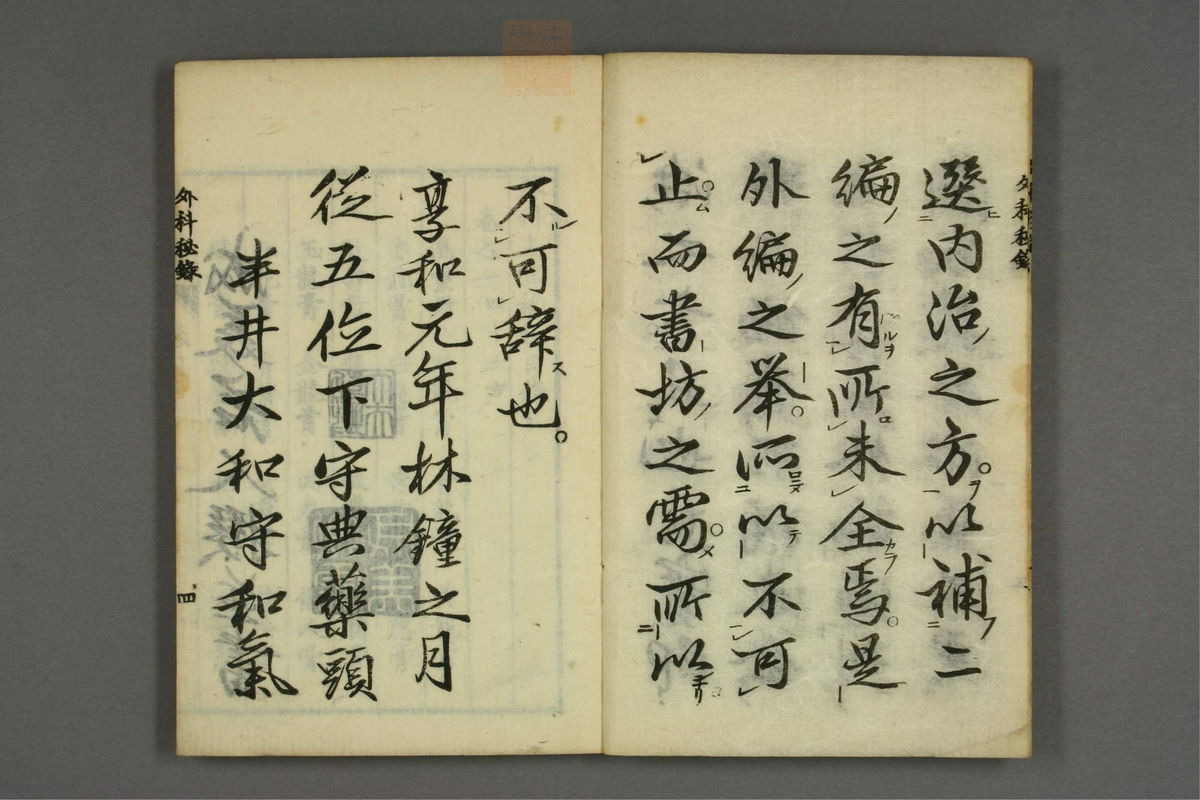 選内治之方以補二
編之有所未全焉是
外編之挙所以不可
止而書坊之需所以
不可辞也
享和元年林鐘之月
従五位下守典藥頭
半井大和守和氣
外科秘録
四